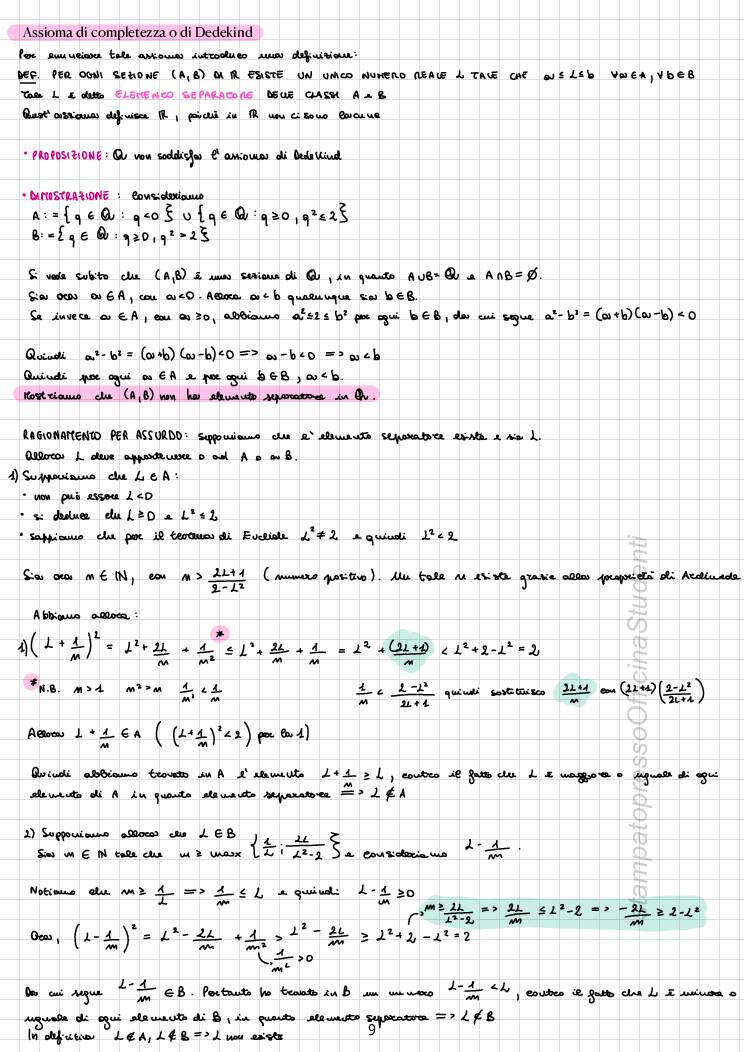 Assioma di completezza o di Dedekind
Per enunciare tale assioma introduco una definizione:
DEF. PER OGNI SEZIONE (A,B) DI ℝ ESISTE UN UNICO NUMERO REALE L TALE CHE a ≤ L ≤ b ∀a∈A, ∀b∈B
Tale L è detto ELEMENTO SEPARATORE DELLE CLASSI A e B
Quest'assioma definisce ℝ, poiché in ℝ non ci sono lacune
• PROPOSIZIONE: ℚ non soddisfa l'assioma di Dedekind
• DIMOSTRAZIONE: Consideriamo
A := {q ∈ ℚ : q<0} ∪ {q ∈ ℚ : q≥0, q² ≤ 2}
B := {q ∈ ℚ : q≥0, q² > 2}
Si vede subito che (A,B) è una sezione di ℚ, in quanto A∪B=ℚ e A∩B=∅.
Sia ora a∈A, con a<0. Allora a<b qualunque sia b∈B.
Se invece a∈A, con a≥0, abbiamo a² ≤ 2 ≤ b² per ogni b∈B, da cui segue a²-b² = (a+b)(a-b) < 0
Quindi a²-b² = (a+b)(a-b)<0 => a-b<0 => a<b
Quindi per ogni a∈A e per ogni b∈B, a<b.
Mostriamo che (A,B) non ha elemento separatore in ℚ.
RAGIONAMENTO PER ASSURDO: supponiamo che l'elemento separatore esista e sia L.
Allora L deve appartenere o ad A o a B.
1) Supponiamo che L∈A:
• non può essere L<0
• si deduce che L≥0 e L² ≤ 2
• sappiamo che per il teorema di Euclide L² ≠ 2 e quindi L² < 2
Sia ora n∈ℕ, con n > (2L+1)/(2-L²) (numero positivo). Un tale n esiste grazie alla proprietà di Archimede
Abbiamo allora:
1) (L + 1/n)² = L² + 2L/n + 1/n² ≤* L² + 2L/n + 1/n = L² + (2L+1)/n < L² + 2 - L² = 2
* N.B. n>1 n²>n 1/n² < 1/n 1/n < (2-L²)/(2L+1) quindi sostituisco (2L+1)/n con (2L+1)((2-L²)/(2L+1))
Allora L + 1/n ∈ A ((L+1/n)² < 2) per la 1)
Quindi abbiamo trovato in A l'elemento L+1/n ≥ L, contro il fatto che L è maggiore o uguale di ogni
elemento di A in quanto elemento separatore => L∉A
2) Supponiamo allora che L∈B
Sia n∈ℕ tale che n ≥ max {1/L ; 2L/(L²-2)} e consideriamo L - 1/n.
Notiamo che n ≥ 1/L => 1/n ≤ L e quindi L - 1/n ≥ 0
n ≥ 2L/(L²-2) => 2L/n ≤ L²-2 => -2L/n ≥ 2-L²
Ora, (L - 1/n)² = L² - 2L/n + 1/n² > L² - 2L/n ≥ L² + 2 - L² = 2
1/n² > 0
Da cui segue L - 1/n ∈ B. Pertanto ho trovato in B un numero L - 1/n < L, contro il fatto che L è minore o
uguale di ogni elemento di B, in quanto elemento separatore => L∉B
In definitiva L∉A, L∉B => L non esiste
9
tampatopressoOfficinaStudenti